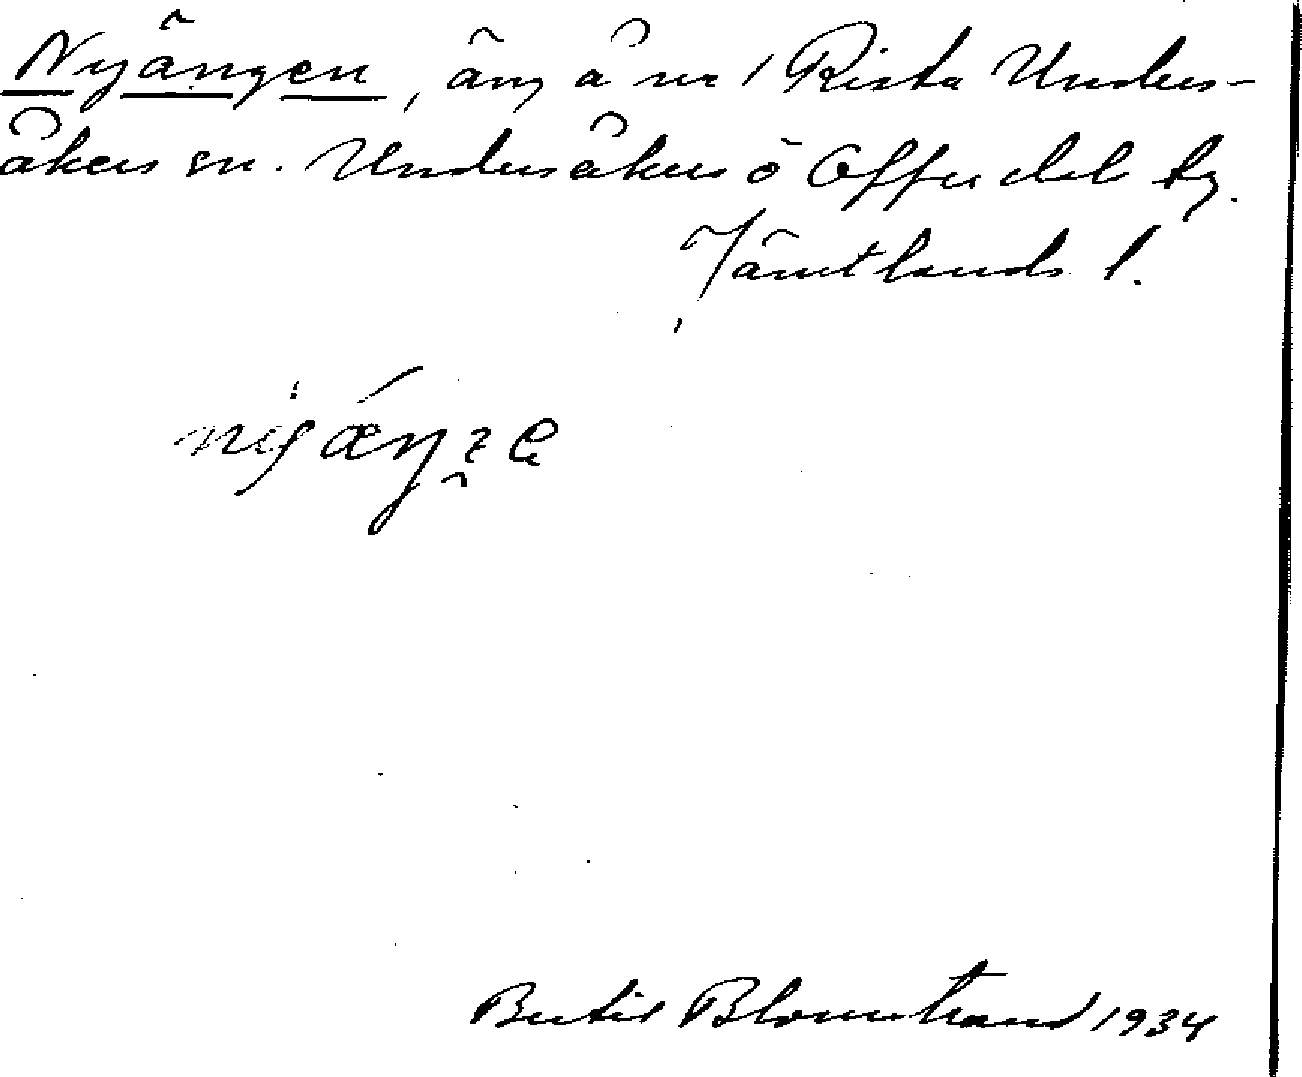 Nyängen, äng å nr 1 Rista Unders-
åkers sn. Undersåkers o Offerdal tg.
Jämtlands l.
Bertil Blomstrand 1934